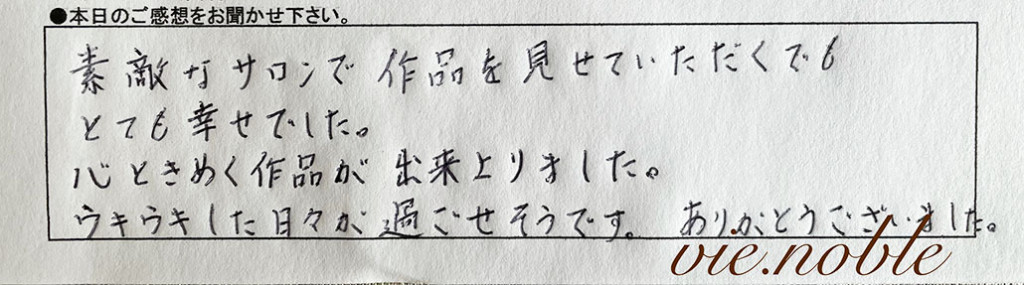 ●本日のご感想をお聞かせ下さい。
素敵なサロンで 作品を見せていただくでも
とても幸せでした。
心ときめく作品が 出来上りました。
ウキウキした日々が 過ごせそうです。 ありがとうございました。
vie.noble